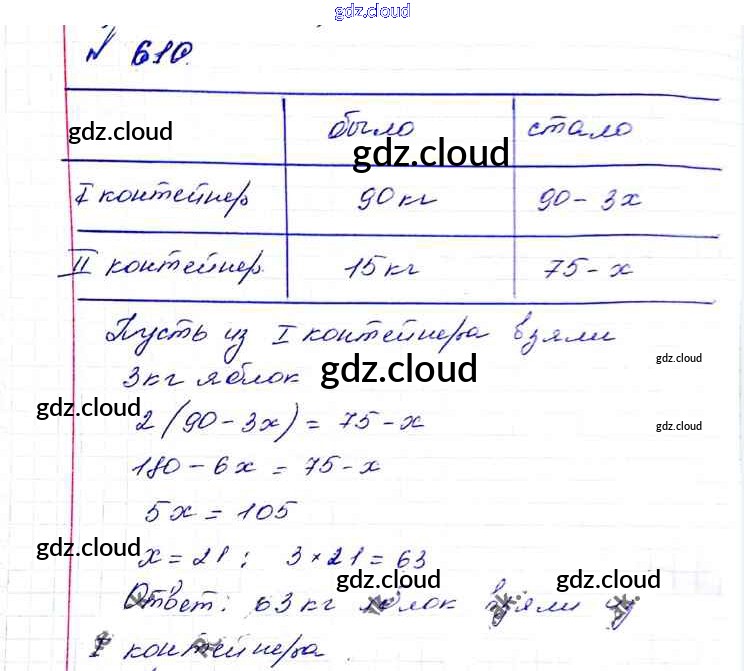 gdz.cloud
№ 610.
gdz.cloud было стало
gdz.cloud
I контейнер 90кг 90 - 3x
II контейнер 15кг 75 - x
Пусть из I контейнера взяли
3кг яблок gdz.cloud gdz.cloud
gdz.cloud 2(90 - 3x) = 75 - x gdz.cloud
180 - 6x = 75 - x
5x = 105
gdz.cloud x = 21; 3 × 21 = 63
gdz.cloud gdz.cloud
Ответ: 63кг яблок взяли из
I контейнера.